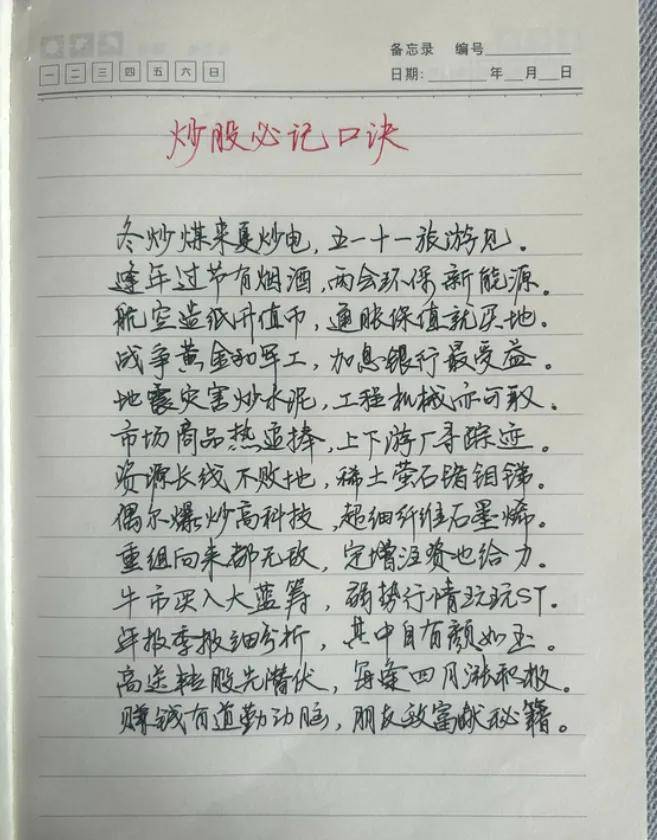 备忘录 编号
一 二 三 四 五 六 日
日期: 年 月 日
炒股必记口诀
冬炒煤来夏炒电，五一十一旅游见。
逢年过节有烟酒，两会环保新能源。
航空造纸升值币，通胀保值就买地。
战争黄金和军工，加息银行最受益。
地震灾害炒水泥，工程机械亦可取。
市场商品热追捧，上下游厂寻踪迹。
资源长线不败地，稀土萤石锗钼锑。
偶尔爆炒高科技，超细纤维石墨烯。
重组向来都无敌，定增注资也给力。
牛市买入大蓝筹，弱势行情玩玩ST。
年报季报细分析，其中自有颜如玉。
高送转股先潜伏，每逢四月涨积极。
赚钱有道勤动脑，朋友致富献秘籍。